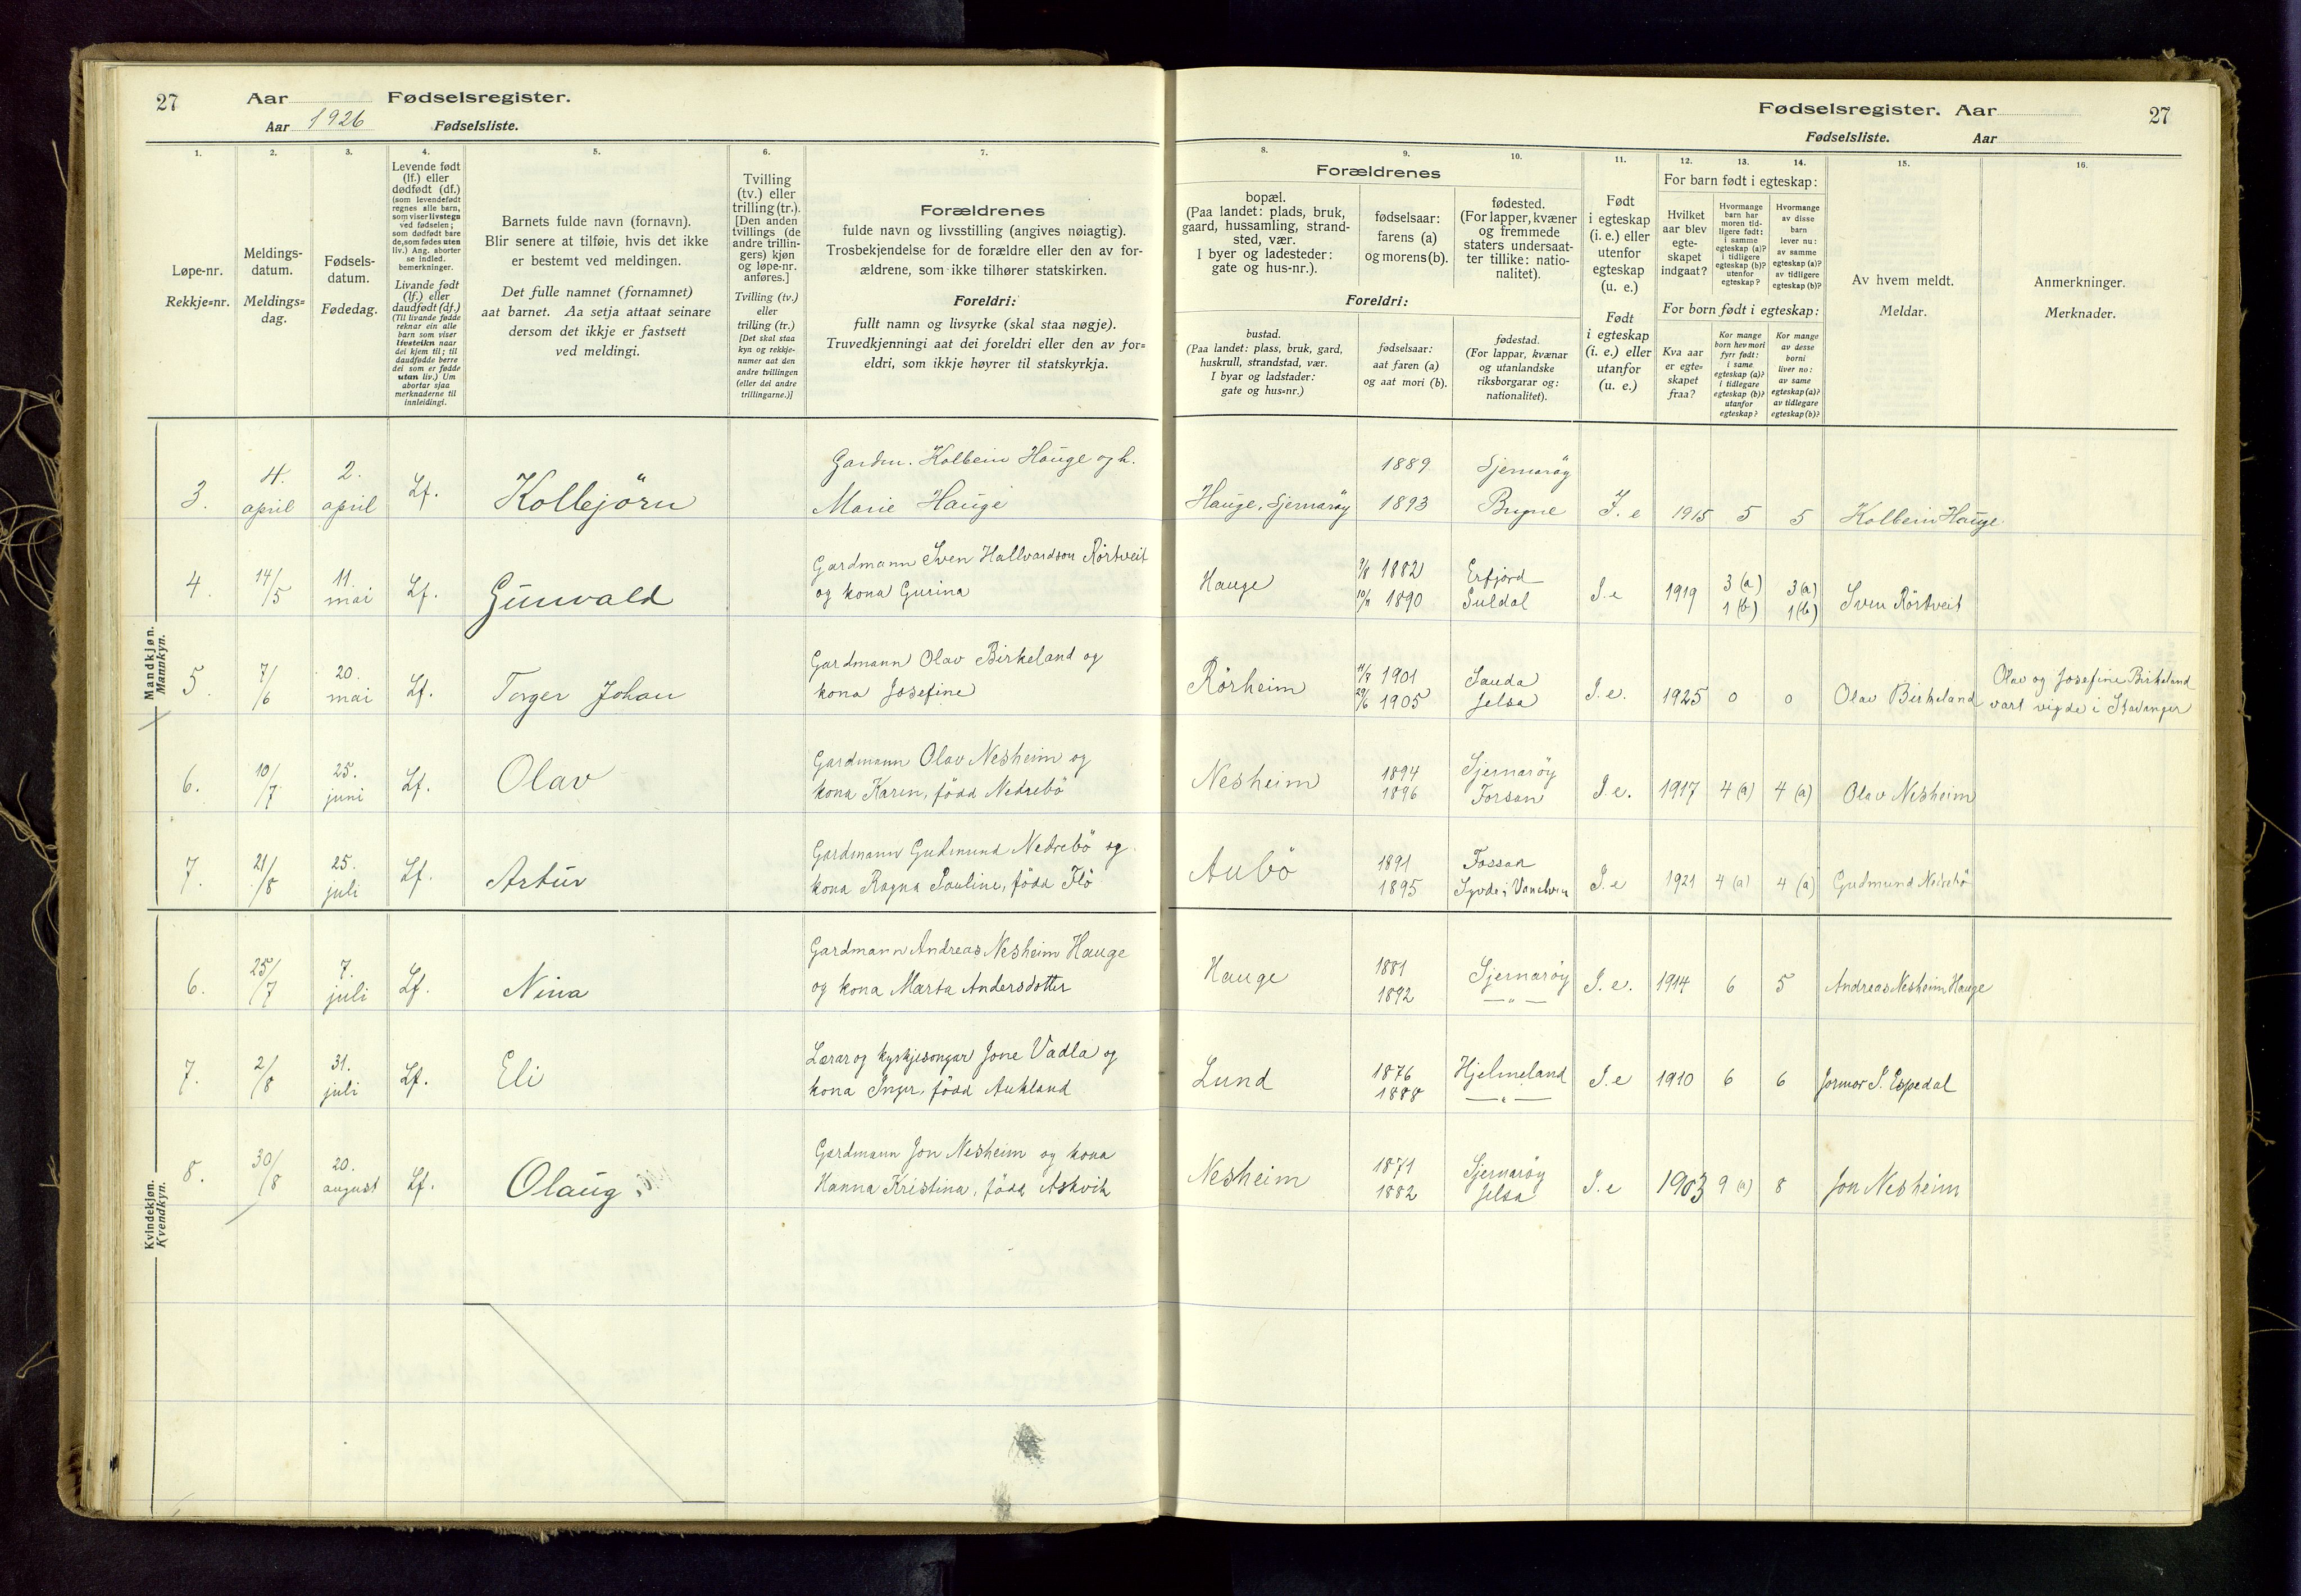 27 Aar Fødselsregister.
Aar 1926 Fødselsliste.
1. 2. 3. 4. 5. 6. 7.
Løpe-nr.
Rekkje=nr.
Meldings-
datum.
Meldings=
dag.
Fødsels-
datum.
Fødedag.
Levende født
(lf.) eller
dødfødt (df.)
(som levendefødt
regnes alle barn,
som viser livstegn
ved fødselen;
som dødfødt bare
de, som fødes uten
liv.) Ang. aborter
se indled.
bemerkninger.
Livande født
(lf.) eller
daudfødt (df.)
(Til livande fødde
reknar ein alle
barn som viser
livsteikn naar
dei kjem til; til
daudfødde berre
dei som er fødde
utan liv.) Um
abortar sjaa
merknaderne til
innleidingi.
Barnets fulde navn (fornavn).
Blir senere at tilføie, hvis det ikke
er bestemt ved meldingen.
Det fulle namnet (fornamnet)
aat barnet. Aa setja attaat seinare
dersom det ikkje er fastsett
ved meldingi.
Tvilling
(tv.) eller
trilling (tr.).
[Den anden
tvillings (de
andre trillin-
gers) kjøn
og løpe-nr.
anføres.]
Tvilling (tv.)
eller
trilling (tr.)
[Det skal staa
kyn og rekkje-
numer aat den
andre tvillingen
(eller dei andre
trillingarne.)]
Forældrenes
fulde navn og livsstilling (angives nøiagtig).
Trosbekjendelse for de forældre eller den av for-
ældrene, som ikke tilhører statskirken.
Foreldri:
fullt namn og livsyrke (skal staa nøgje).
Truvedkjenningi aat dei foreldri eller den av for=
eldri, som ikkje høyrer til statskyrkja.
Mandkjøn.
Mannkyn.
3. 4. april 2. april Lf. Kolbjörn Gardm. Kolbein Hauge og h.
Marie Hauge
4. 14/5 11. mai Lf. Gunvald Gardmann Sven Hallvardson Rörtveit
og kona Gurina
5. 7/6 20. mai Lf. Torger Johan Gardmann Olav Birkeland og
kona Josefine
6. 10/7 25. juni Lf. Olav Gardmann Olav Nesheim og
kona Karen, född Nedrebö
7. 21/8 25. juli Lf. Artur Gardmann Gudmund Nedrebö og
kona Ragna Pauline, född Flö
Kvindekjøn.
Kvendkyn.
6. 25/7 7. juli Lf. Nina Gardmann Andreas Nesheim Hauge
og kona Marta Andersdotter
7. 2/8 31. juli Lf. Eli Lærar og kyrkjesongar Jone Vadla og
kona Inger, född Aukland
8. 30/8 20. august Lf. Olaug Gardmann Jon Nesheim og kona
Hanna Kristina, född Askvik
Fødselsregister. Aar 27
Fødselsliste. Aar
8. 9. 10. 11. 12. 13. 14. 15. 16.
Forældrenes
bopæl.
(Paa landet: plads, bruk,
gaard, hussamling, strand-
sted, vær.
I byer og ladesteder:
gate og hus-nr.).
fødselsaar:
farens (a)
og morens (b).
fødested.
(For lapper, kvæner
og fremmede
staters undersaat-
ter tillike: natio-
nalitet).
Foreldri:
bustad.
(Paa landet: plass, bruk, gard,
huskrull, strandstad, vær.
I byar og ladstader:
gate og hus=nr.)
fødselsaar:
aat faren (a)
og aat mori (b).
fødestad.
(For lappar, kvænar
og utanlandske
riksborgarar og:
nationalitet).
Født
i egteskap
(i. e.) eller
utenfor
egteskap
(u. e.)
Født
i egteskap
(i. e.) eller
utanfor
(u. e.)
For barn født i egteskap:
Hvilket
aar blev
egte-
skapet
indgaat?
Hvormange
barn har
moren tid-
ligere født:
i samme
egteskap (a)?
i tidligere
egteskap (b)?
utenfor
egteskap?
Hvormange
av disse
barn
lever nu:
av samme
egteskap (a)?
av tidligere
egteskap (b)?
For born født i egteskap:
Kva aar
er egte=
skapet
fraa?
Kor mange
born hev mori
fyrr født:
i same
egteskap (a)?
i tidlegare
egteskap (b)?
utanfor
egteskap?
Kor mange
av desse
borni
liver no:
av same
egteskap (a)?
av tidlegare
egteskap (b)?
Av hvem meldt.
Meldar.
Anmerkninger.
Merknader.
1889 Sjernaröy
Hauge, Sjernaröy 1893 Bryne I. e 1915 5 5 Kolbein Hauge.
Hauge 1882 Erfjord
1890 Suldal I. e 1919 3 (a) 3 (a)
1 (b) 1 (b) Sven Rörtveit
Rörheim 1901 Sauda
29/6 1905 Jelsa I. e. 1925 0 0 Olav Birkeland Olav og Josefine Birkeland
vart vigde i Stavanger
Nesheim 1894 Sjernaröy
1896 Forsan I. e. 1917 4 (a) 4 (a) Olav Nesheim
Aubö 1891 Fossan
1895 Syvde i Vanelven I. e 1921 4 (a) 4 (a) Gudmund Nedrebö
Hauge 1881 Sjernaröy
1892 — " — I. e. 1914 6 5 Andreas Nesheim Hauge
Lund 1876 Hjelmeland
1888 — " — I. e 1910 6 6 Jormor S. Espedal
Nesheim 1871 Sjernaröy
1882 Jelsa I. e 1903 9 (a) 8 Jon Nesheim